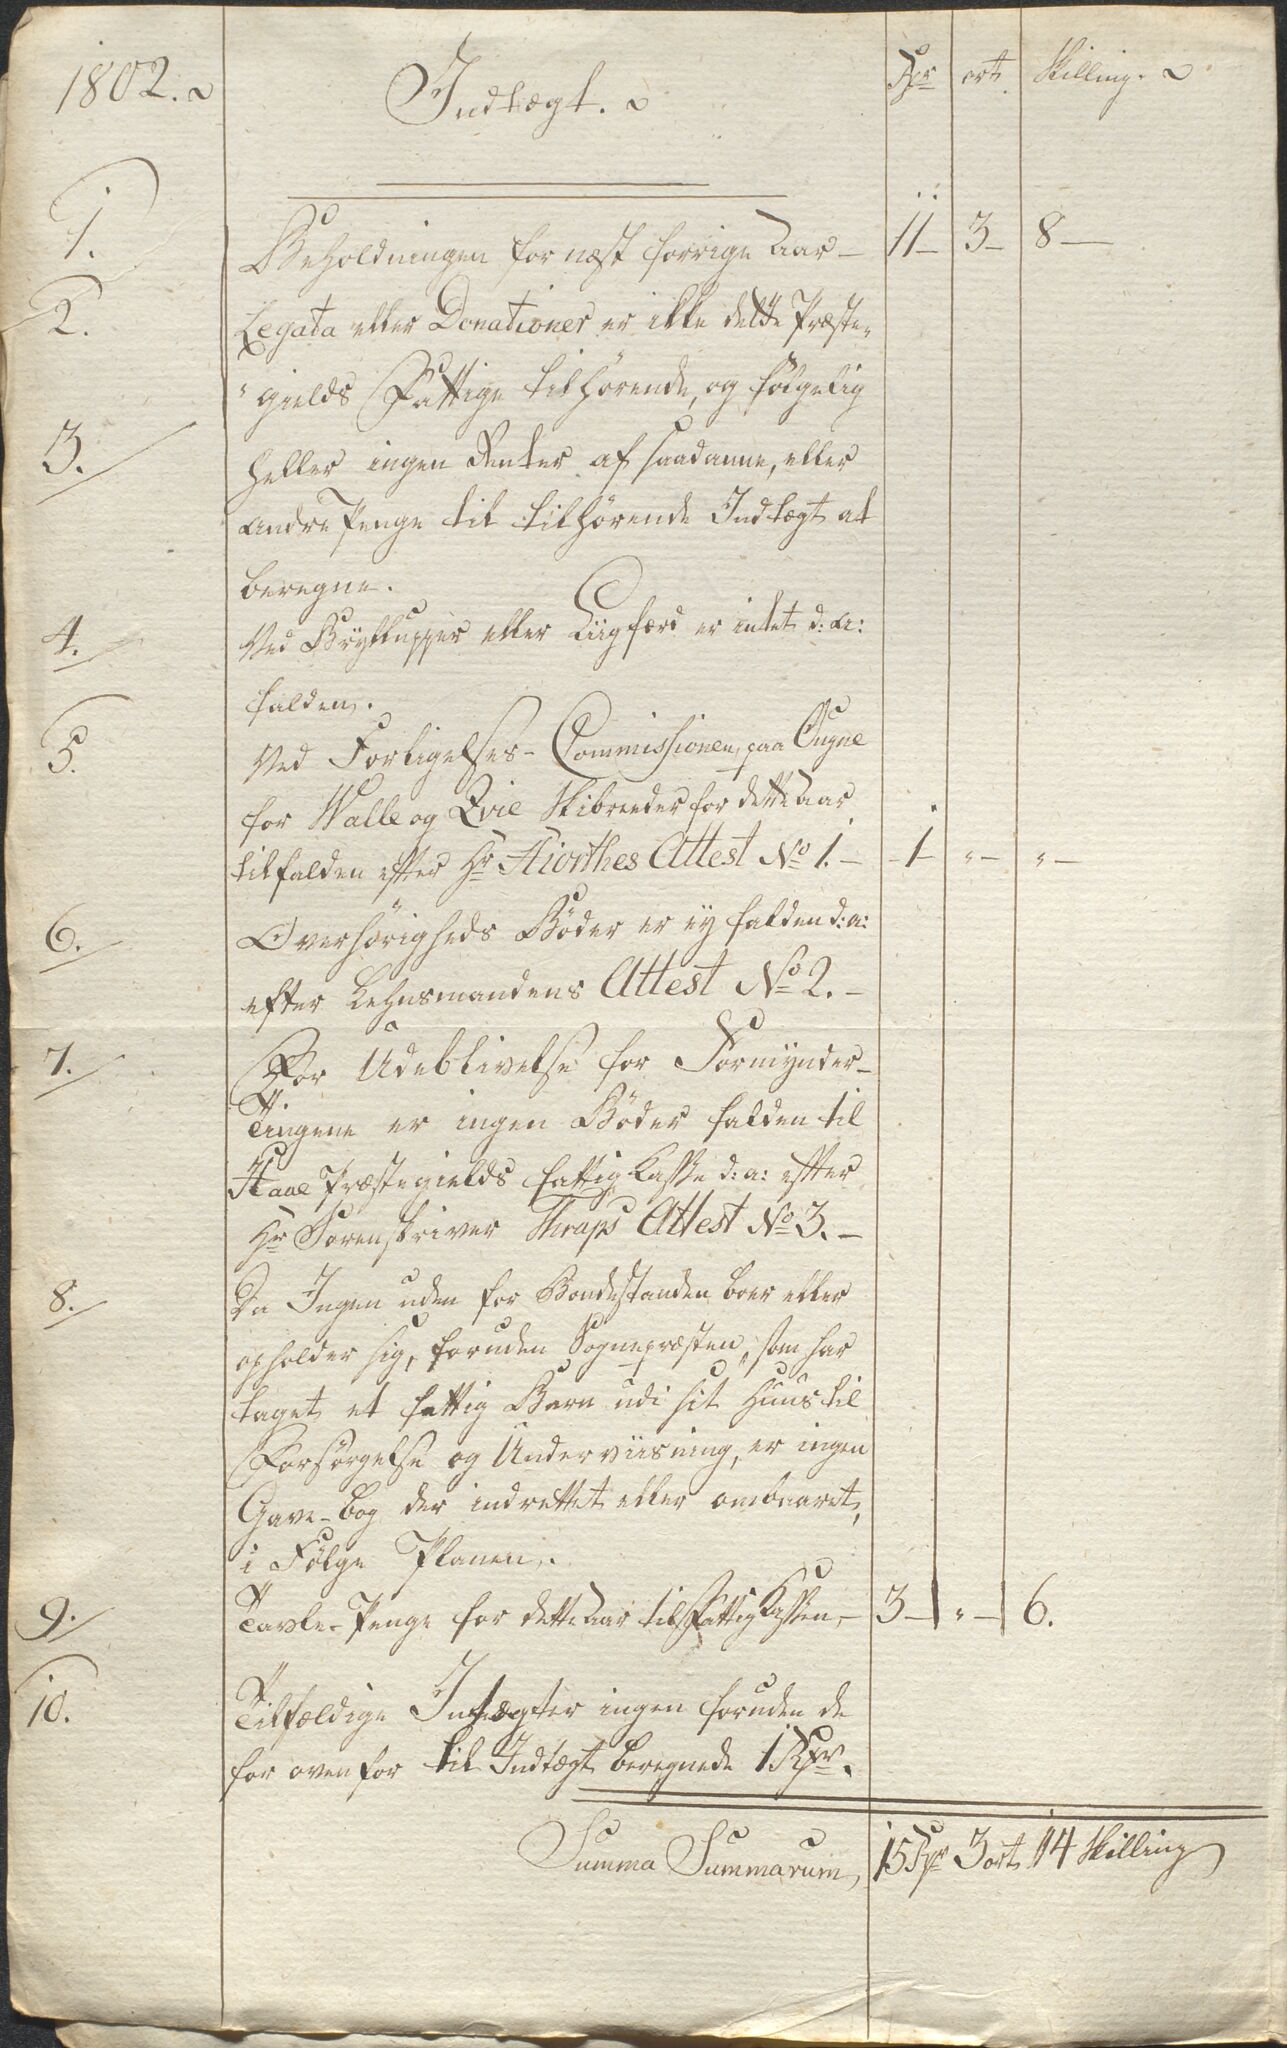 1802. Indtægt. Rdr ort. Skilling.
1. Beholdningen for næst forrige Aar — 11 — 3 — 8 —
2. Legata eller Donationer er ikke dette Præste-
gields Fattige tilhørende, og følgelig
3. heller ingen Renter af saadanne, eller
andre Penge til tilhørende Indtægt at
beregne.
4. Ved Brylluppper eller Liigfærd er intet d: A:
falden.
5. Ved Forligelses-Commissionen paa Ougne
for Walle og Qvie Skibreeder for dette Aar
tilfalden efter Hr Hiorthes Attest No 1. — 1 — " — " —
6. Overhørigheds Bøder er ey falden d: a:
efter Lehnsmandens Attest No 2. —
7. For Udeblivelse for Formynder-
Tingene er ingen Bøder falden til
Haae Præstegields fattig Kasse d: a: efter
Hr Sorenskriver Thraps Attest No 3. —
8. Da Ingen uden for Bondestanden boer eller
opholder sig, foruden Sognepræsten, som har
taget et fattig Barn udi sit Huus til
Forsørgelse og Underviisning, er ingen
Gave-bog der indrettet eller ombaaret,
i Følge Planen.
9. Tavle-Penge for dette Aar til Fattig Kassen — 3 — " — 6.
10. Tilfældige Indtægter ingen foruden de
for oven for til Indtægt beregnede 1 Rdr.
Summa Summarum, 15 Rdr 3 ort 14 Skilling